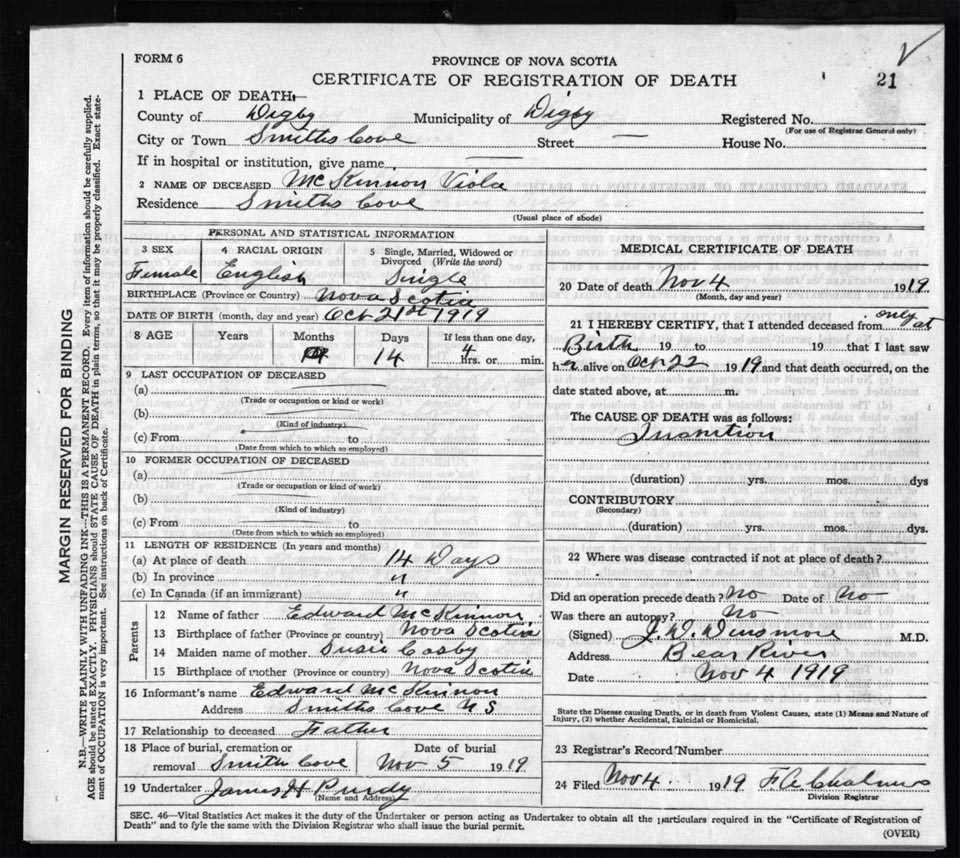 FORM 6
PROVINCE OF NOVA SCOTIA
CERTIFICATE OF REGISTRATION OF DEATH
21
1 PLACE OF DEATH—
County of Digby Municipality of Digby Registered No.
(For use of Registrar General only)
City or Town Smiths Cove Street — House No.
If in hospital or institution, give name
2 NAME OF DECEASED McKinnon Viola
Residence Smiths Cove
(Usual place of abode)
PERSONAL AND STATISTICAL INFORMATION
3 SEX 4 RACIAL ORIGIN 5 Single, Married, Widowed or Divorced (Write the word)
Female English Single
BIRTHPLACE (Province or Country) Nova Scotia
DATE OF BIRTH (month, day and year) Oct 21st 1919
8 AGE Years Months Days If less than one day,
14 4 hrs. or min.
9 LAST OCCUPATION OF DECEASED
(a)
(Trade or occupation or kind or work)
(b)
(Kind of industry)
(c) From to
(Date from which to which so employed)
10 FORMER OCCUPATION OF DECEASED
(a)
(Trade or occupation or kind of work)
(b)
(Kind of industry)
(c) From to
(Date from which to which so employed)
11 LENGTH OF RESIDENCE (In years and months)
(a) At place of death 14 Days
(b) In province "
(c) In Canada (if an immigrant) "
Parents
12 Name of father Edward McKinnon
13 Birthplace of father (Province or country) Nova Scotia
14 Maiden name of mother Susie Cosby
15 Birthplace of mother (Province or country) Nova Scotia
16 Informant's name Edward McKinnon
Address Smiths Cove N S
17 Relationship to deceased Father
18 Place of burial, cremation or removal Smith Cove Date of burial Nov 5 1919
19 Undertaker James H Purdy
(Name and Address)
MEDICAL CERTIFICATE OF DEATH
20 Date of death Nov 4 1919
(Month, day and year)
21 I HEREBY CERTIFY, that I attended deceased from only at
Birth 19 to 19 that I last saw
her alive on Oct 22 1919 and that death occurred, on the
date stated above, at m.
The CAUSE OF DEATH was as follows:
Inanition
(duration) yrs. mos. dys
CONTRIBUTORY
(Secondary)
(duration) yrs. mos. dys.
22 Where was disease contracted if not at place of death?
Did an operation precede death? No Date of No
Was there an autopsy? No
(Signed) J. W. Dinsmore M.D.
Address Bear River
Date Nov 4 1919
State the Disease causing Death, or in death from Violent Causes, state (1) Means and Nature of
Injury, (2) whether Accidental, Suicidal or Homicidal.
23 Registrar's Record Number
24 Filed Nov 4 1919 F A Chalmers
Division Registrar
SEC. 46—Vital Statistics Act makes it the duty of the Undertaker or person acting as Undertaker to obtain all the particulars required in the "Certificate of Registration of
Death" and to fyle the same with the Division Registrar who shall issue the burial permit.
(OVER)
MARGIN RESERVED FOR BINDING
N.B.—WRITE PLAINLY WITH UNFADING INK—THIS IS A PERMANENT RECORD. Every item of information should be carefully supplied.
AGE should be stated EXACTLY. PHYSICIANS should STATE CAUSE OF DEATH in plain terms, so that it may be properly classified. Exact state-
ment of OCCUPATION is very important. See instructions on back of Certificate.